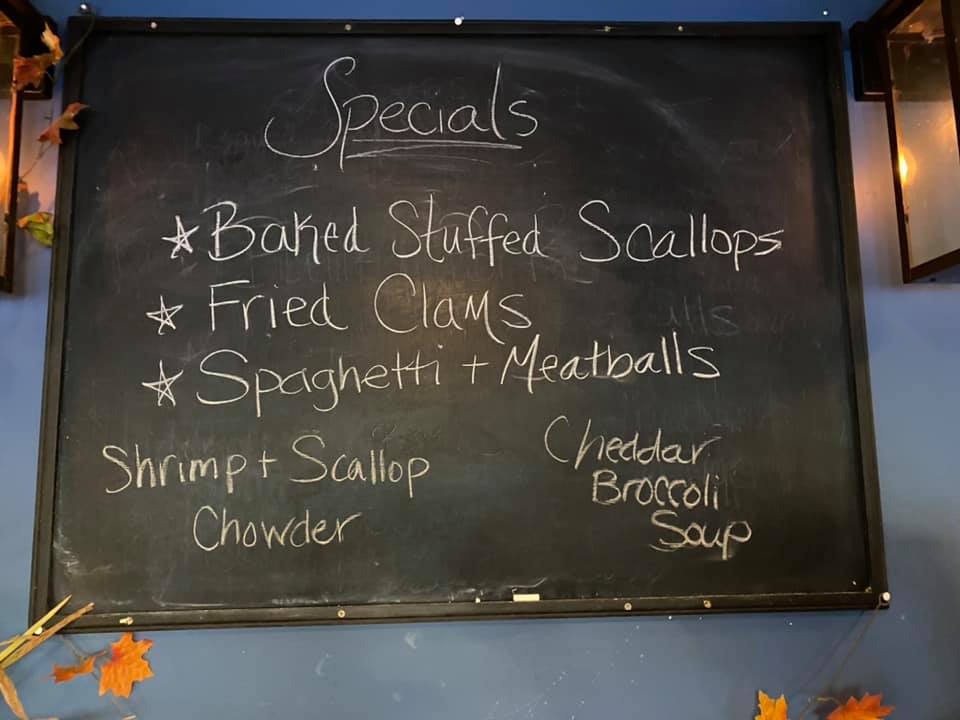 Specials
☆ Baked Stuffed Scallops
☆ Fried Clams
☆ Spaghetti + Meatballs
Shrimp + Scallop
Chowder
Cheddar
Broccoli
Soup